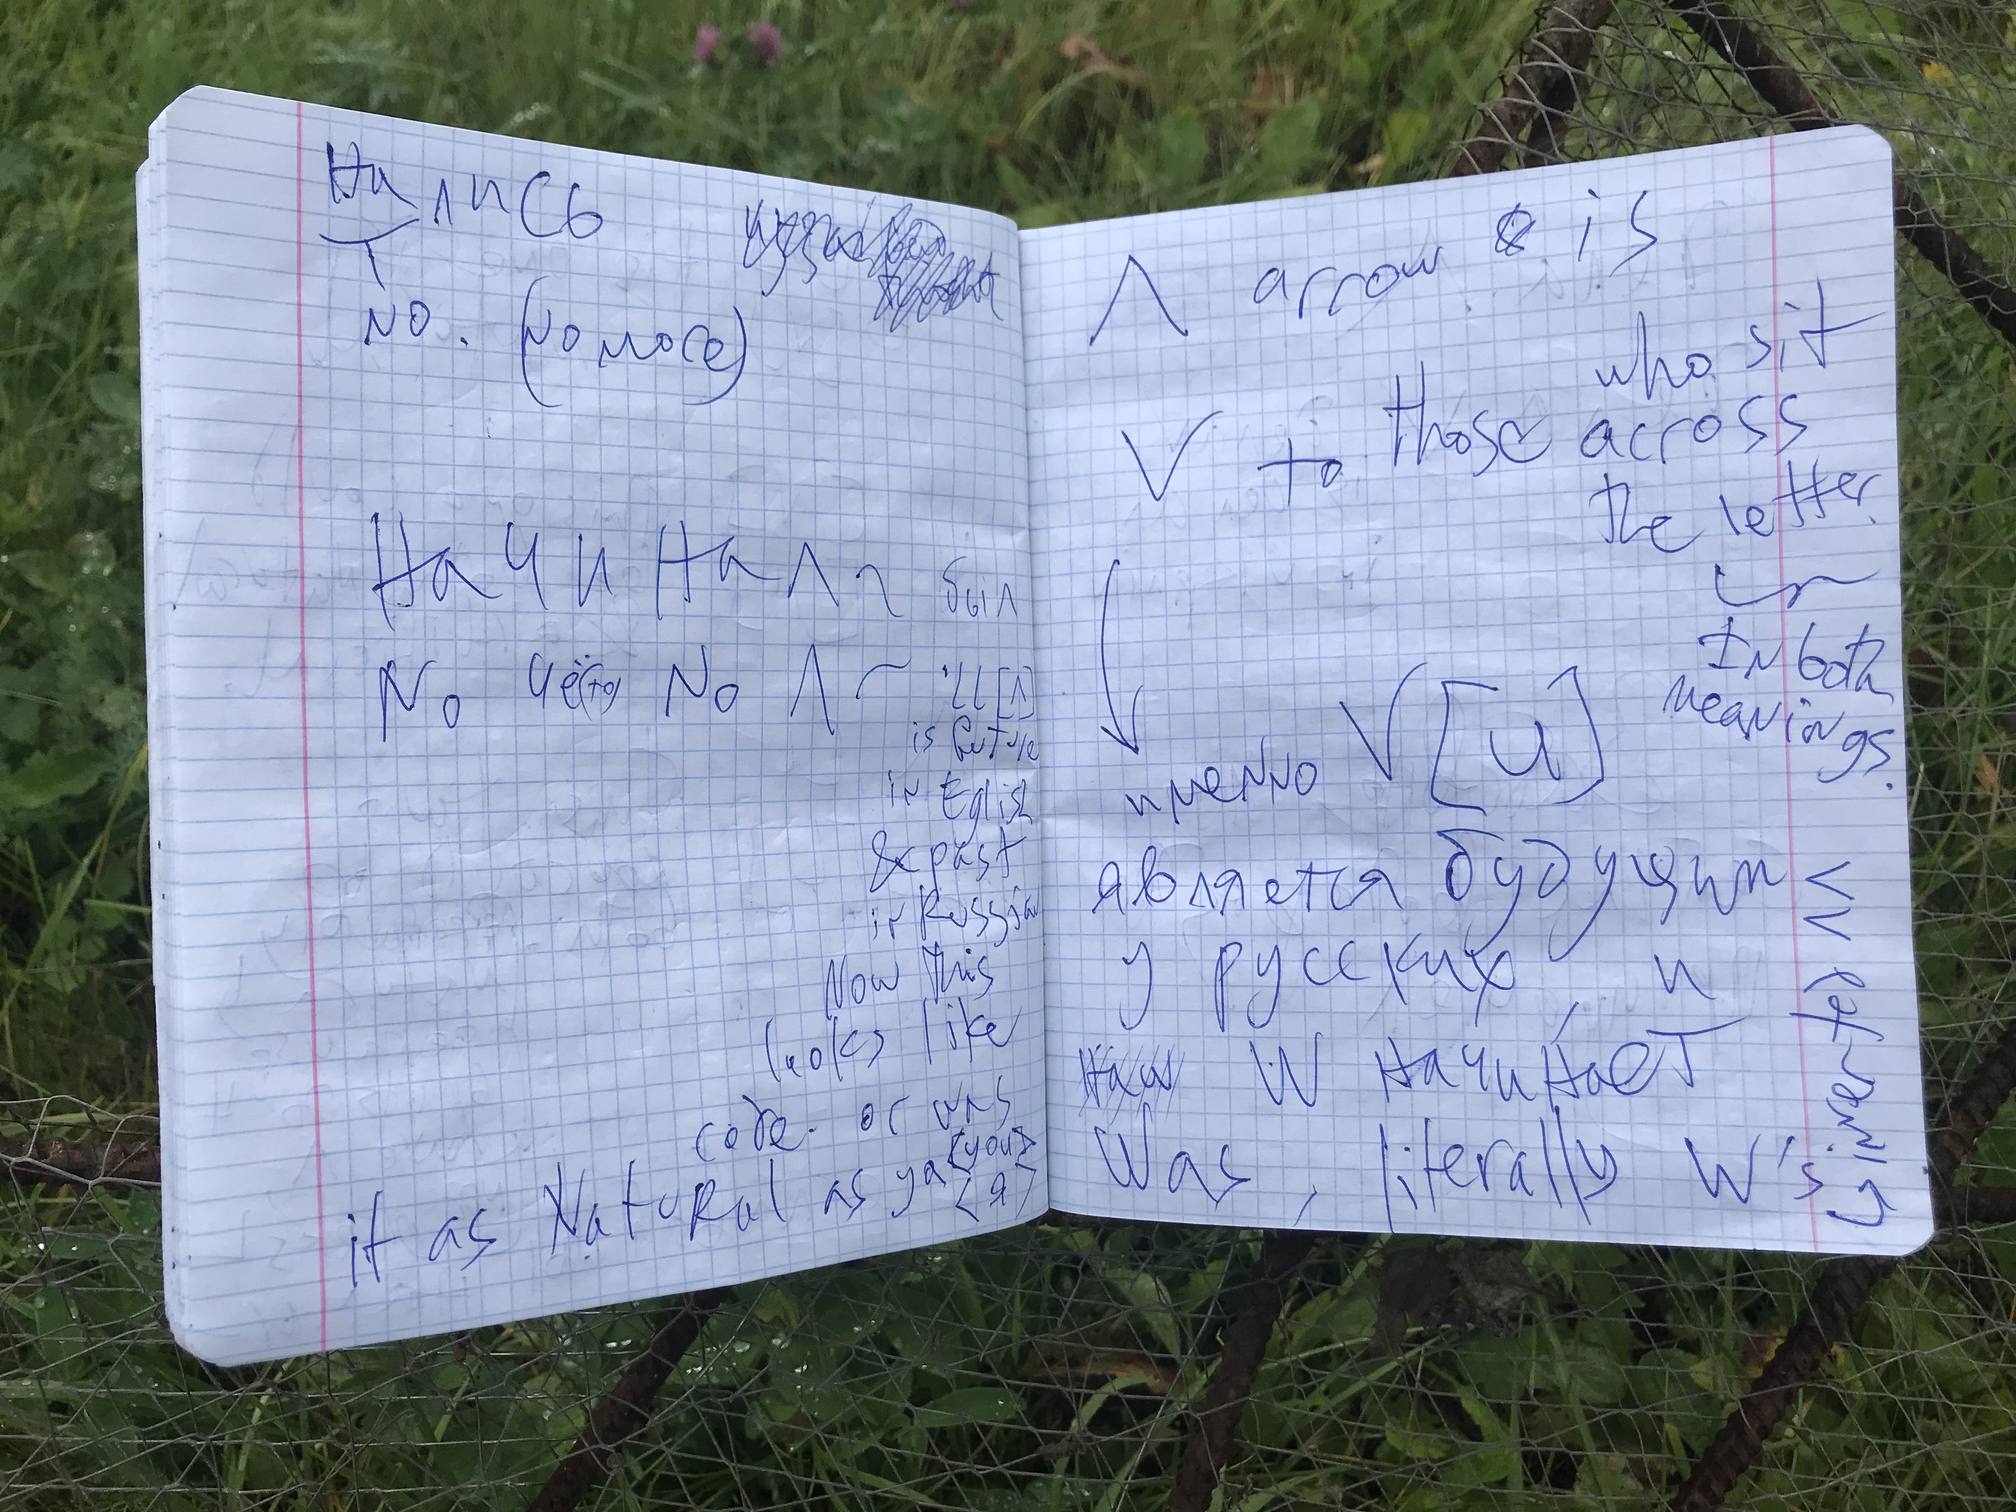 На лись
NO. (NO more)
На Ч И На Л был
No чё(то) No Л 'LL [Л]
is future
in Eglish
& past
in Russian
Now this
looks like
code. or was
it as Natural as ya <you>
<я>
Λ arrow is
who sit
V to those across
the letter.
IN both
meanings.
именно V [u]
является будущим
у русских, и
W начинает
Was, literally W's
inverted ΛΛ